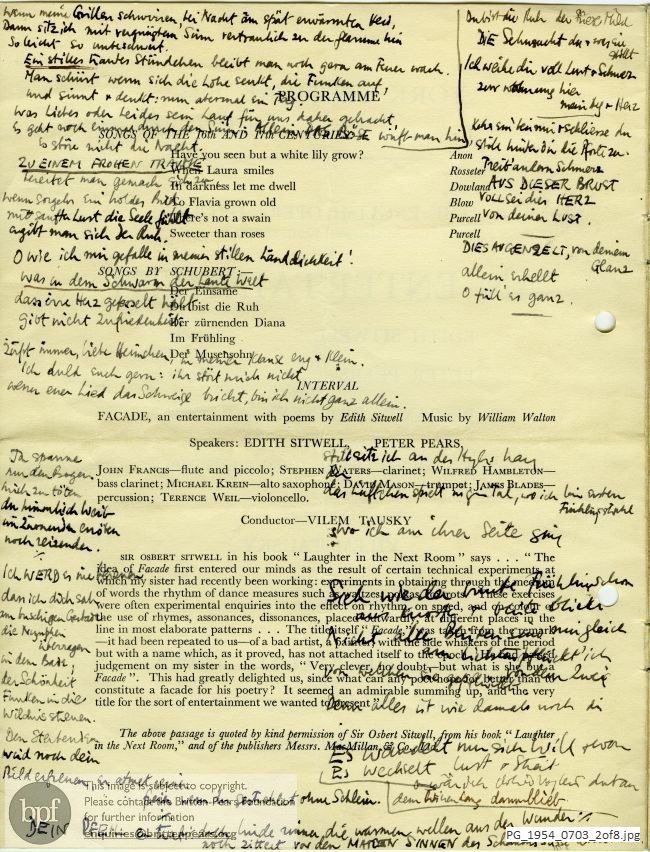 wenn meine Grillen schwirren, bei Nacht am spät erwärmten Herd,
Dann sitz ich mit vergnügtem Sinn vertraulich zu der Flamme hin
So leicht so unbeschwert.
Ein stilles Stündchen bleibt man noch gern am Feuer wach.
Man schürt wenn sich die Lohe senkt, die Funken auf
und sinnt & denkt: nun abermal ein Tag
Was Liebes oder Leides sein Lauf für uns daher gebracht,
Es geht noch einmal durch den Sinn; Allein das Böse wirft man hin,
Es störe nicht die Nacht.
ZU EINEM FROHEN TRAUME
bereitet man gemach sich zu
wenn sorglos ein holdes Bild
mit sanfter Lust die Seele füllt
ergibt man sich der Ruh.
O wie ich mir gefalle in meiner stillen Ländlichkeit!
Was in dem Schwarm der lauten Welt
das irre Herz gefesselt hält
gibt nicht Zufriedenheit.
Zirpt immer, liebe Heimchen, in meiner Klause eng & klein.
Ich duld euch gern: ihr stört mich nicht
wenn euer Lied das Schweigen bricht, bin ich nicht ganz allein.
Du bist die Ruh der Friede Mild
DIE Sehnsucht du & was sie
stillt
Ich weihe dir voll Lust & Schmerz
zur wohnung hier
mein Aug & Herz
Kehr ein bei mir & schliesse du
still hinter dir die Pforte zu.
Treib andern Schmerz
AUS DIESER BRUST
VOLL sei dies HERZ
von deiner LUST.
DIES AUGENZELT, von deinem
Glanz
allein erhellt
O füll es ganz.
PROGRAMME
SONGS OF THE 16th AND 17th CENTURIES
Have you seen but a white lily grow? Anon
When Laura smiles Rosseter
In darkness let me dwell Dowland
To Flavia grown old Blow
There's not a swain Purcell
Sweeter than roses Purcell
SONGS BY SCHUBERT
Der Einsame
Du bist die Ruh
Der zürnenden Diana
Im Frühling
Der Musensohn
INTERVAL
FACADE, an entertainment with poems by Edith Sitwell Music by William Walton
Speakers: EDITH SITWELL, PETER PEARS,
JOHN FRANCIS—flute and piccolo; STEPHEN WATERS—clarinet; WILFRED HAMBLETON—
bass clarinet; MICHAEL KREIN—alto saxophone; DAVID MASON—trumpet; JAMES BLADES—
percussion; TERENCE WEIL—violoncello.
Conductor—VILEM TAUSKY
SIR OSBERT SITWELL in his book "Laughter in the Next Room" says . . . "The
idea of Facade first entered our minds as the result of certain technical experiments at
which my sister had recently been working: experiments in obtaining through the medium
of words the rhythm of dance measures such as waltzes, polkas, foxtrots. These exercises
were often experimental enquiries into the effect on rhythm, on speed, and on colour of
the use of rhymes, assonances, dissonances, placed outwardly, at different places in the
line in most elaborate patterns . . . The title itself "Facade" was taken from the remark
—it had been repeated to us—of a bad artist, a painter with the side whiskers of the period
but with a name which, as it proved, has not attached itself to
judgement on my sister in the words, "Very clever, no doubt—but what is she but a
Facade". This had greatly delighted us, since what can any poet hope for better than to
constitute a facade for his poetry? It seemed an admirable summing up, and the very
title for the sort of entertainment we wanted to present."
The above passage is quoted by kind permission of Sir Osbert Sitwell, from his book "Laughter
in the Next Room," and of the publishers Messrs. MacMillan & Co.
Ja spanne
nur den Bogen
mich zu töten
du himmlisch Weib
im zürnenden erröten
noch reizender.
Ich WERD es nie bereuen
dass ich dich sah
am buschigen Gestade
die Nymphen
überragen
in dem Bade;
der Schönheit
Funken in die
Wildnis streuen.
Den Sterbenden
wird noch dein
Bild erfreuen,
still sitz ich an des Hügels hang
das Lüftchen spielt im grünen Tal, wo ich beim ersten
Frühlingsstrahl
wo ich an ihrer Seite ging
Sieh wie der bunte Frühling schon
aus Knosp und Blüte blickt
Nicht alle Blüten sind mir gleich
denn alles ist wie damals noch
Es wandelt nur sich Will & wahn
Es wechselt Lust & Streit
This image is subject to copyright.
Please contact the Britten-Pears Foundation
for further information
enquiries@brittenpears.org
bpf
ohne Schleier.
DEIN
die warmen wellen aus der Wunde:
noch zittert vor den MATTEN SINNEN
PG_1954_0703_2of8.jpg